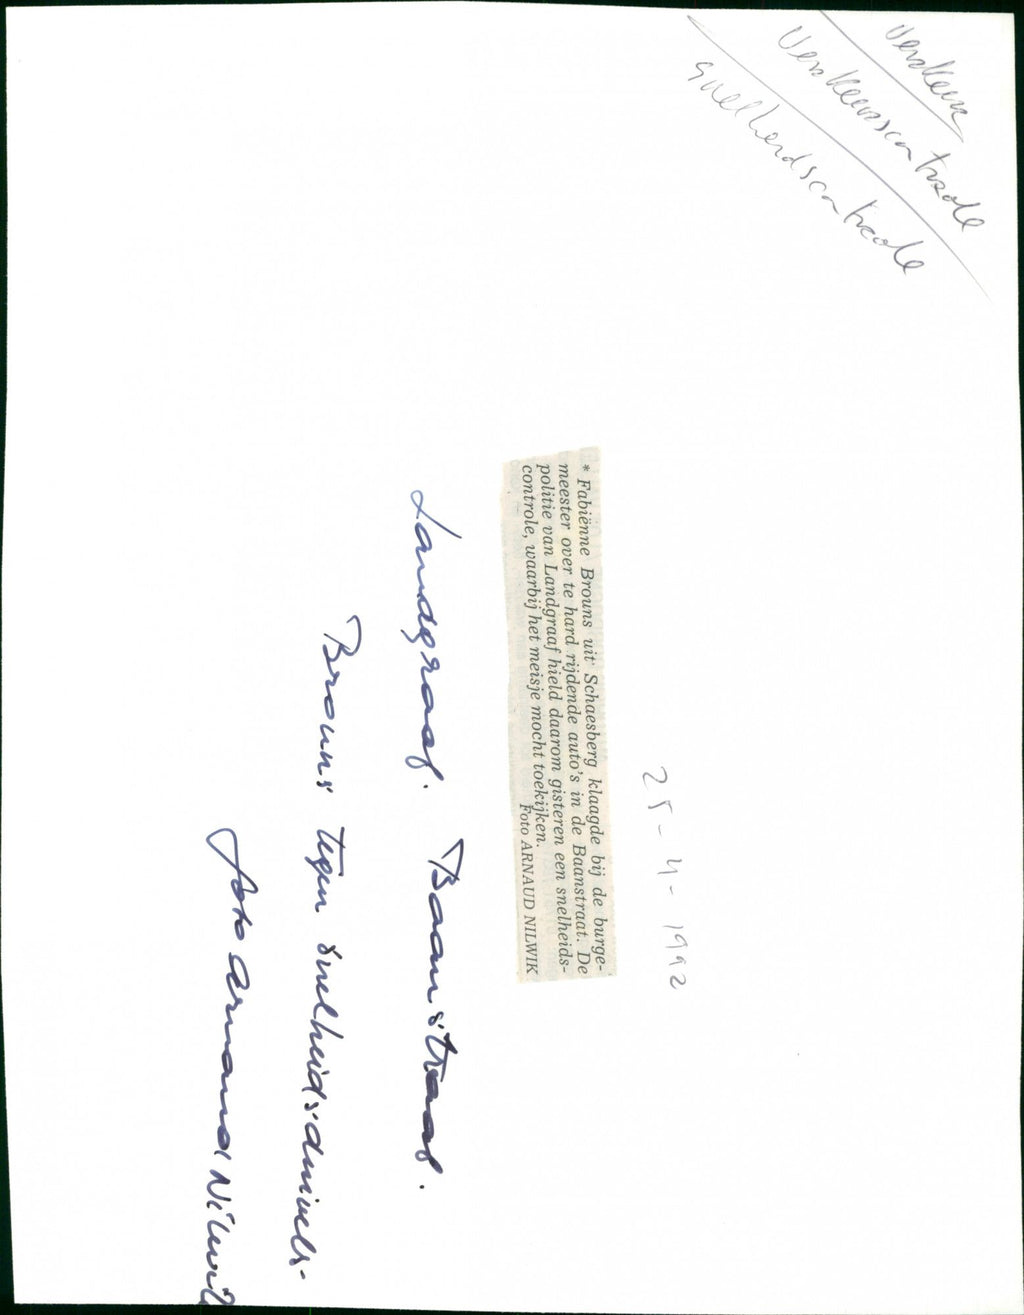 Verkeer
Verkeerscontrole
Snelheidscontrole
25-4-1992
* Fabiënne Brouns uit Schaesberg klaagde bij de burge-
meester over te hard rijdende auto's in de Baanstraat. De
politie van Landgraaf hield daarom gisteren een snelheids-
controle, waarbij het meisje mocht toekijken.
Foto ARNAUD NILWIK
Landgraaf. Baanstraat.
Brouns tegen snelheidsduivels.
foto Arnaud Nilwik